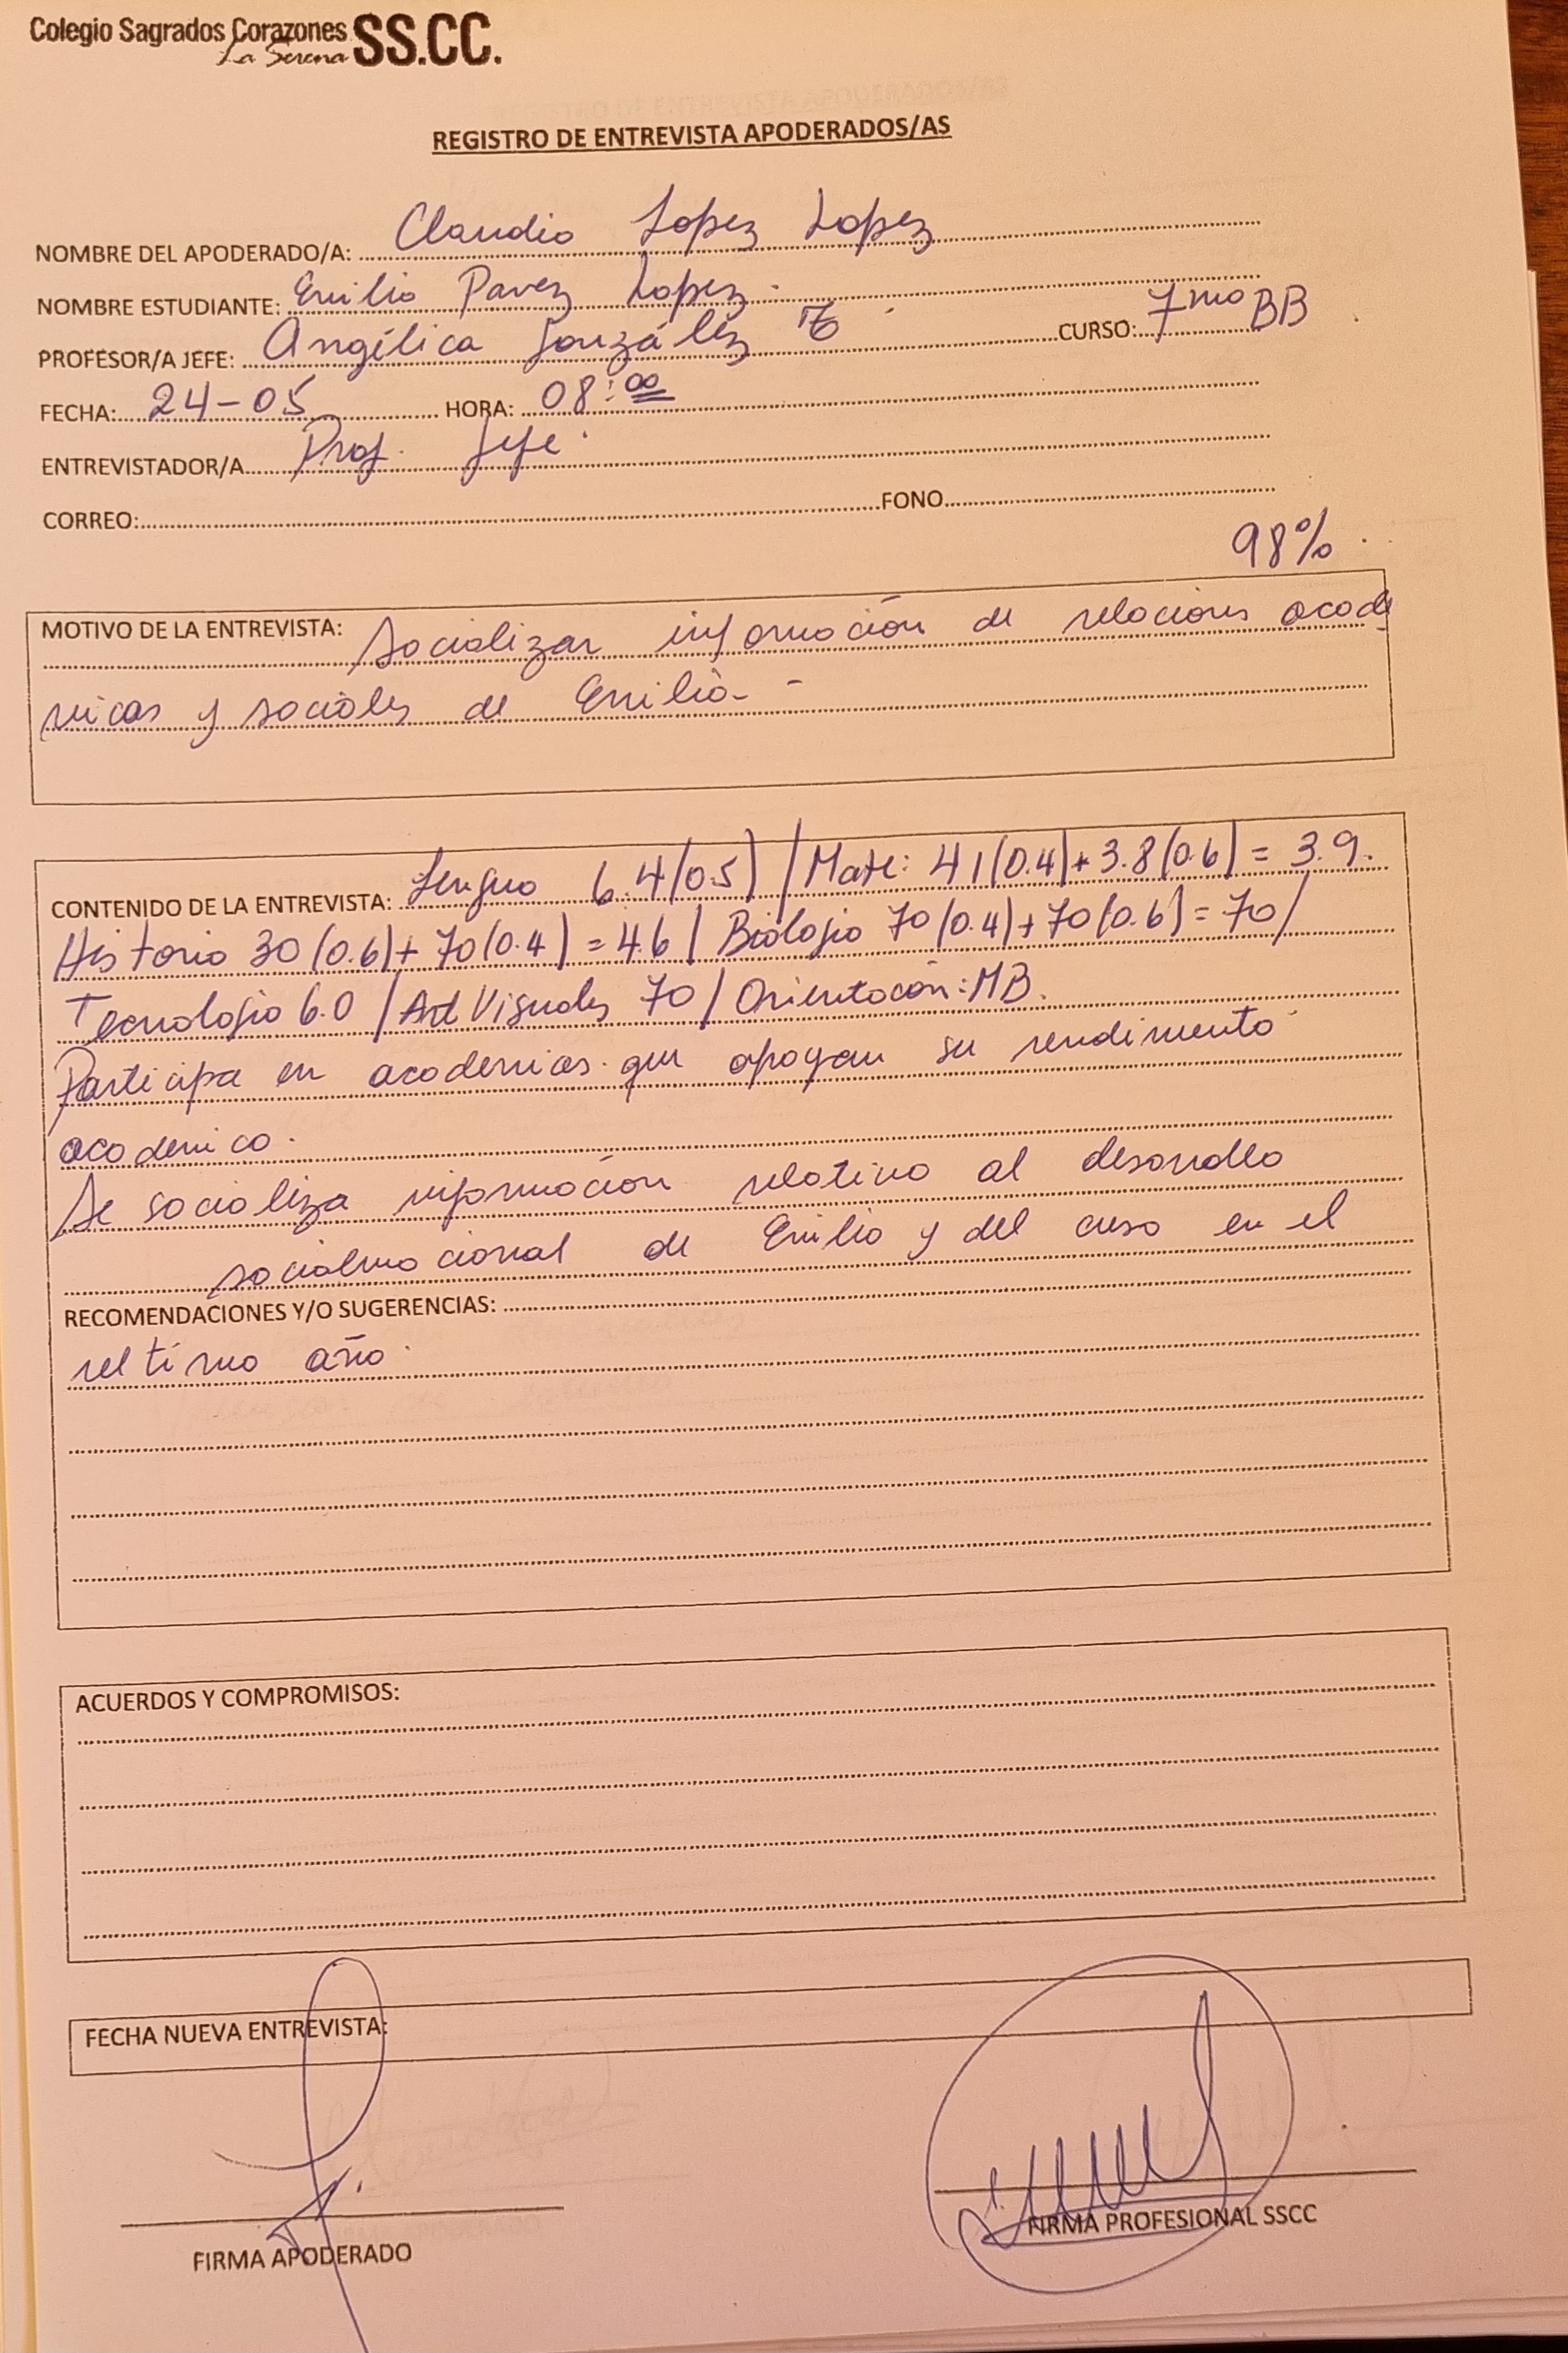 Colegio Sagrados Corazones SS.CC.
La Serena
REGISTRO DE ENTREVISTA APODERADOS/AS
NOMBRE DEL APODERADO/A: Claudio Lopez Lopez
NOMBRE ESTUDIANTE: Emilio Pavez Lopez.
PROFESOR/A JEFE: Angélica González CURSO: 7mo BB
FECHA: 24-05 HORA: 08:00
ENTREVISTADOR/A Prof. Jefe.
CORREO: FONO
98%
MOTIVO DE LA ENTREVISTA: Socializar información de relaciones acadé
micas y sociales de Emilio-
CONTENIDO DE LA ENTREVISTA: Lengua 6.4(0.5) / Mate: 41(0.4)+3.8(0.6) = 3.9.
Historia 30(0.6)+70(0.4) = 4.6 / Biología 70(0.4)+70(0.6) = 70/
Tecnología 6.0 / Art Visuales 70 / Orientación: MB.
Participa en academias que apoyan su rendimiento
académico.
Se socializa información relativa al desarrollo
socialemocional de Emilio y del curso en el
RECOMENDACIONES Y/O SUGERENCIAS:
último año.
ACUERDOS Y COMPROMISOS:
FECHA NUEVA ENTREVISTA:
FIRMA APODERADO
FIRMA PROFESIONAL SSCC